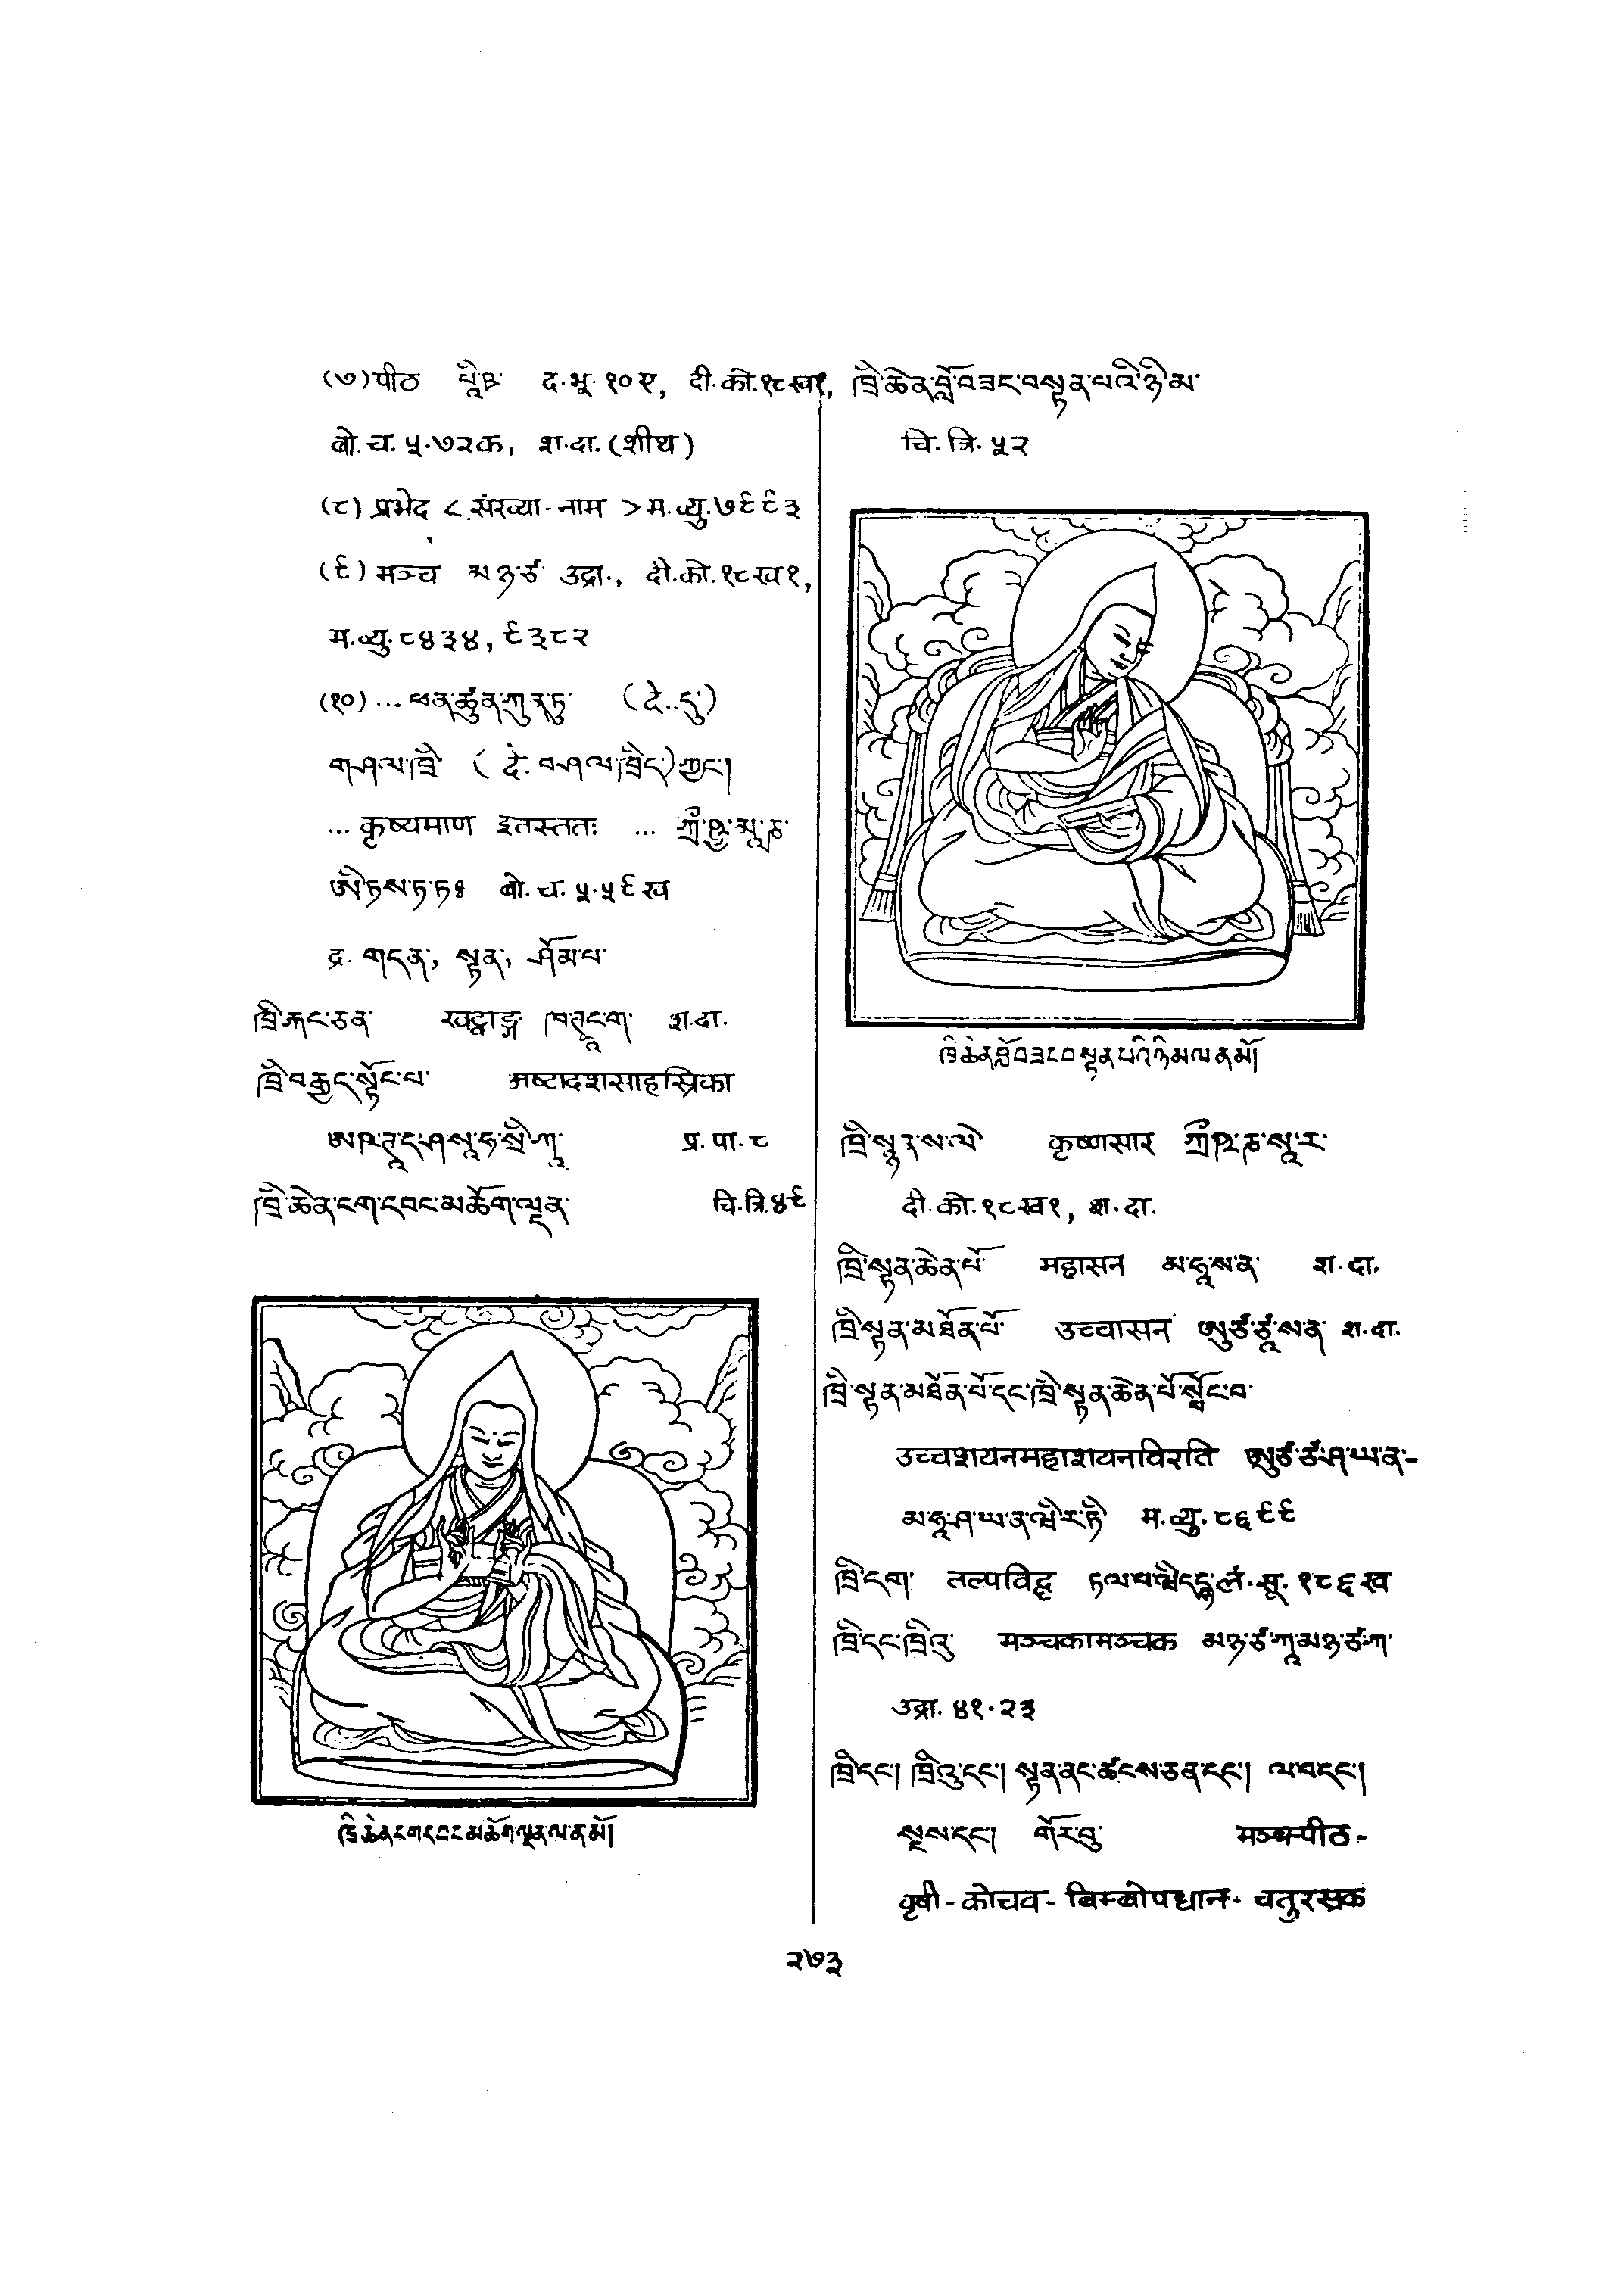 (७) पीठ པཱི་ཋ་ द.भू. १०ए, दी.को.१८ख१,
बो.च. ५.७२क, श.दा. (शीथ)
(८) प्रभेद < संख्या-नाम > म.व्यु.७९९३
(९) मञ्च མཉ་ཙ་ उद्रा., दी.को.१८ख१,
म.व्यु.८४३४, ९३८२
(१०) ... ཕན་ཚུན་ཀུན་ཏུ་ (དེ..དུ་)
གཤལ་ཁྲི་ (དེ. བཤལ་ཁྲིད་) ཀྱང་།
... कृष्यमाण इतस्ततः ... ཀྲྀ་ཥྱ་མཱ་ཎ་
ཨི་ཏས་ཏ་ཏཿ बो.च. ५.५९ख
द्र. གདན་, སྟན་, ཤོམ་པ་
ཁྲི་རྐང་ཅན་ खट्वाङ्ग ཁ་ཊྭཱང་ག་ श.दा.
ཁྲི་བརྒྱད་སྟོང་པ་ अष्टादशसाहस्रिका
ཨཥ་ཊཱ་ད་ཤ་སཱ་ཧ་སྲི་ཀཱ་ प्र.पा.८
ཁྲི་ཆེན་ངག་དབང་མཆོག་ལྡན་ चि.त्रि.४९
ཁྲི་ཆེན་ངག་དབང་མཆོག་ལྡན་ལ་ན་མོ།
ཁྲི་ཆེན་བློ་བཟང་བསྟན་པའི་ཉི་མ་
चि.त्रि. ५२
ཁྲི་ཆེན་བློ་བཟང་བསྟན་པའི་ཉི་མ་ལ་ན་མོ།
ཁྲི་སྙན་ས་ལེ་ कृष्णसार ཀྲྀཥ་ཎ་སཱ་ར་
दी.को.१८ख१, श.दा.
ཁྲི་སྟན་ཆེན་པོ་ महासन མ་ཧཱ་ས་ན་ श.दा.
ཁྲི་སྟན་མཐོན་པོ་ उच्चासन ཨུཙ་ཙཱ་ས་ན་ श.दा.
ཁྲི་སྟན་མཐོན་པོ་དང་ཁྲི་སྟན་ཆེན་པོ་སྤོང་བ་
उच्चशयनमहाशयनविरति ཨུཙ་ཙ་ཤ་ཡ་ན་-
མ་ཧཱ་ཤ་ཡ་ན་ཝི་ར་ཏི་ म.व्यु.८६९९
ཁྲི་དག་ तल्पविद्ध ཏལ་པ་ཝིདྡྷ་ लं.सू. १८६ख
ཁྲི་དང་ཁྲིའུ་ मञ्चकामञ्चक མཉ་ཙ་ཀཱ་མཉ་ཙ་ཀ་
उद्रा. ४१.२३
ཁྲི་དང་། ཁྲིའུ་དང་། སྟན་ནང་ཚངས་ཅན་དང་། ལ་བ་དང་།
སྔས་དང་། གོར་བུ་ मञ्च-पीठ-
वृषी-कोचव-बिम्बोपधान-चतुरस्रक
२७३